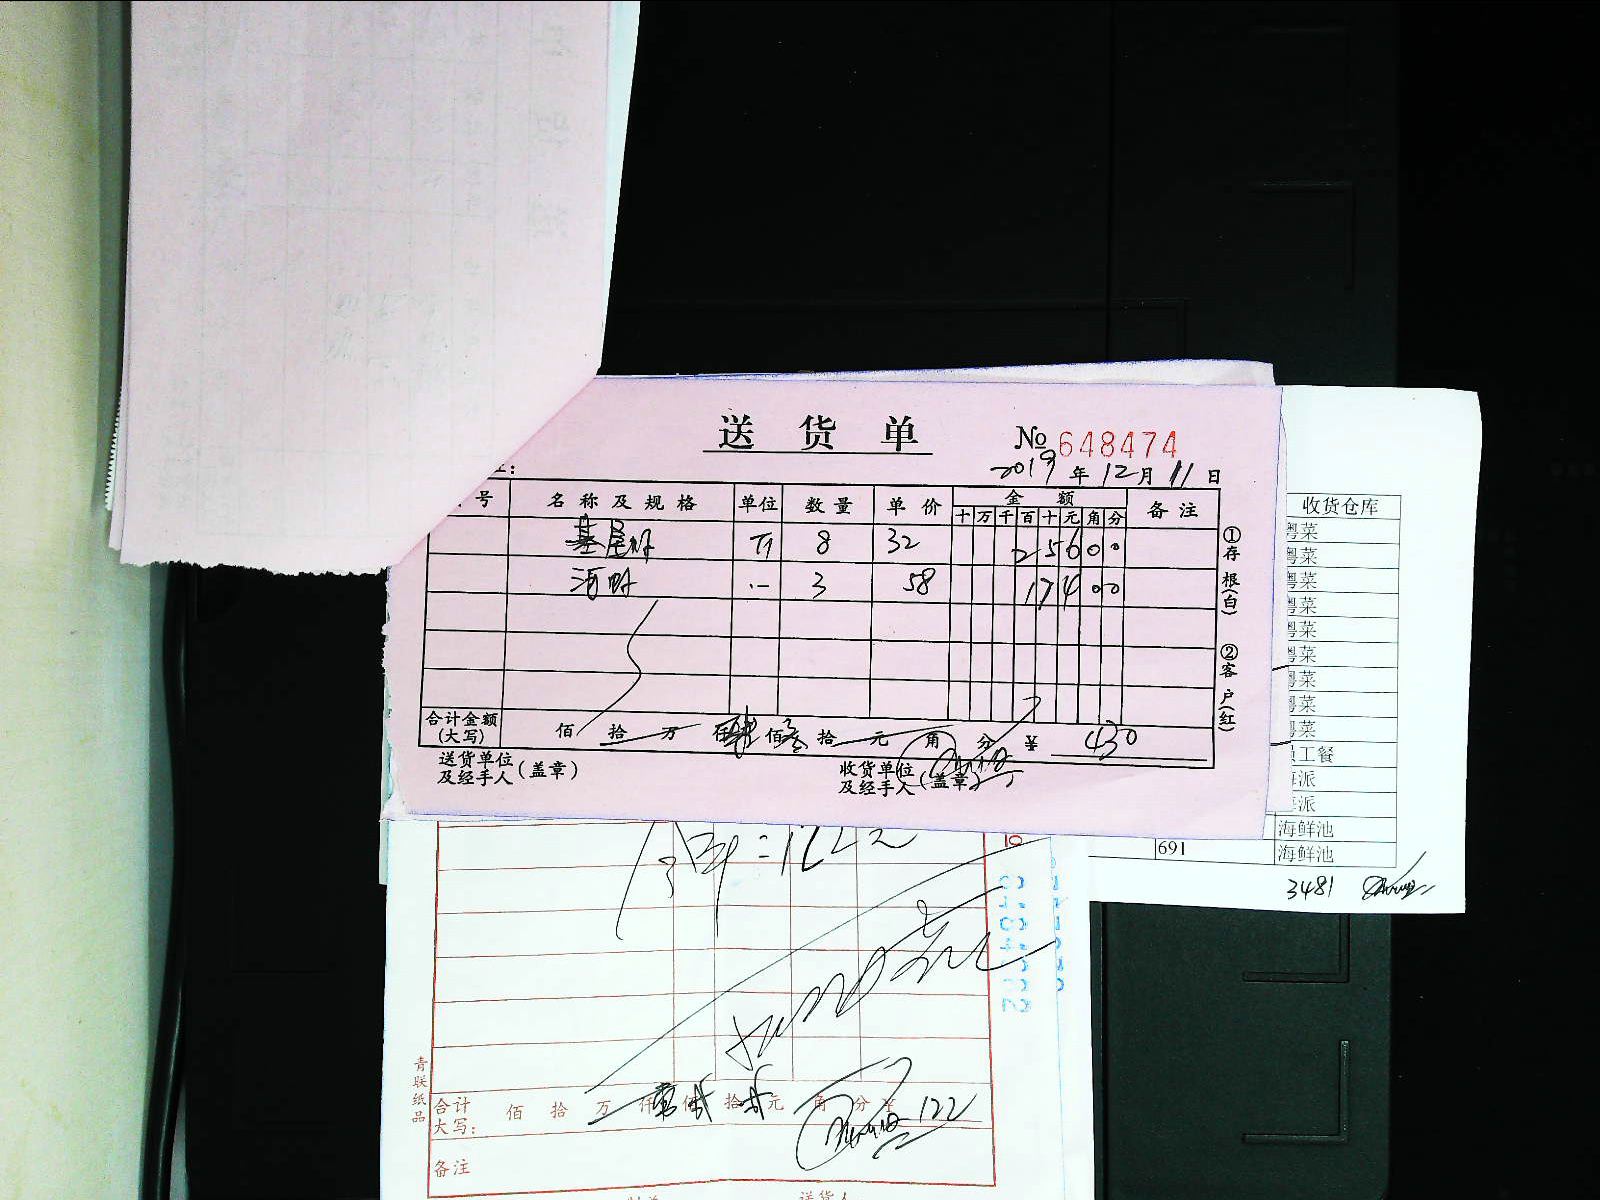 送货单
№648474
2019年12月11日
号 名称及规格 单位 数量 单价 金额 备注
十万千百十元角分
基围虾 斤 8 32 25600
河虾 〃 3 58 17400
合计金额(大写) 佰 拾 万 仟肆佰叁拾 元 角 分 ¥ 430
送货单位及经手人(盖章)
收货单位及经手人(盖章)
①存根(白) ②客户(红)
收货仓库
粤菜
粤菜
粤菜
粤菜
粤菜
粤菜
粤菜
粤菜
粤菜
员工餐
海派
海派
海鲜池
691 海鲜池
3481
青联纸品
合计大写: 佰 拾 万 仟 佰 拾 元 角 分 ¥ 122
备注
送货人